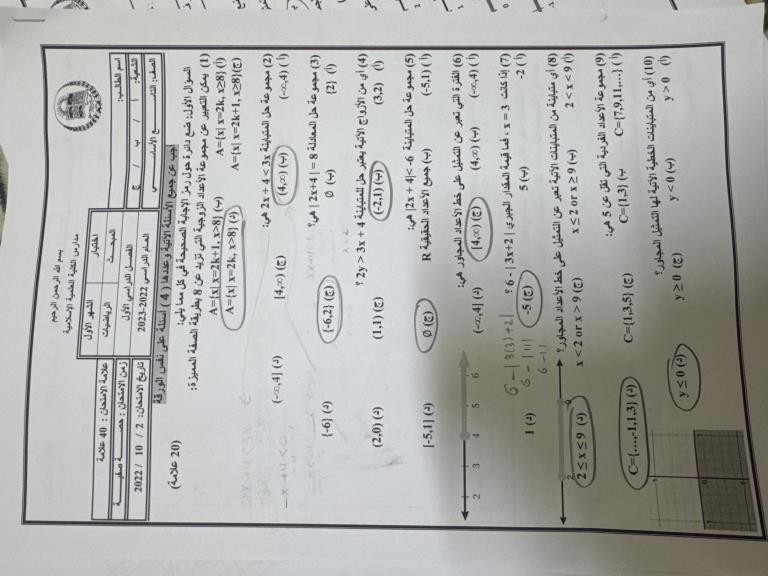 بسم الله الرحمن الرحيم
مدارس الكلية العلمية الإسلامية
اختبار الشهر الأول علامة الامتحان: 40 علامة
اسم الطالب: المبحث الرياضيات زمن الامتحان: حصة صفية
الشعبة: أ / ب / ج الفصل الدراسي الأول تاريخ الامتحان: 2 / 10 / 2022
الصف: التاسع الأساسي العام الدراسي 2022-2023
أجب عن جميع الأسئلة الآتية وعددها ( 4 ) أسئلة على نفس الورقة
السؤال الأول: ضع دائرة حول رمز الإجابة الصحيحة في كل مما يلي: (20 علامة)
1) يمكن التعبير عن مجموعة الأعداد الزوجية التي تزيد عن 8 بطريقة الصفة المميزة:
أ) A={x| x=2k, x≥8} ب) A={x| x=2k+1, x>8}
ج) A={x| x=2k+1, x≥8} د) A={x| x=2k, x>8}
2) مجموعة حل المتباينة 2x + 4 < 3x هي:
أ) (-∞,4) ب) (4,∞) ج) [4,∞) د) (-∞,4]
3) مجموعة حل المعادلة |2x+4| = 8 هي؟
أ) {2} ب) Ø ج) {-6,2} د) {-6}
4) أي من الأزواج الآتية يعتبر حل للمتباينة 2y > 3x + 4 ؟
أ) (3,2) ب) (-2,1) ج) (1,1) د) (2,0)
5) مجموعة حل المتباينة |2x + 4| < -6 هي:
أ) (-5,1) ب) جميع الأعداد الحقيقية R ج) Ø د) [-5,1]
6) الفترة التي تعبر عن التمثيل على خط الأعداد المجاور هي:
2 3 4 5 6
أ) (-∞,4) ب) (4,∞) ج) [4,∞) د) (-∞,4]
7) إذا كانت x = 3 ، فما قيمة المقدار الجبري 6 - |3x+2| ؟
6 - |3(3)+2|
6 - |11|
6 - 11
أ) -2 ب) 5 ج) -5 د) 1
8) أي متباينة من المتباينات الآتية تعبر عن التمثيل على خط الأعداد المجاور؟
2 9
أ) 2 < x < 9 ب) x ≤ 2 or x ≥ 9 ج) x < 2 or x > 9 د) 2 ≤ x ≤ 9
9) مجموعة الأعداد الفردية التي تقل عن 5 هي:
أ) C={7,9,11,...} ب) C={1,3} ج) C={1,3,5} د) C={...,-1,1,3}
10) أي من المتباينات الخطية الآتية لها التمثيل المجاور؟
أ) y > 0 ب) y < 0 ج) y ≥ 0 د) y ≤ 0